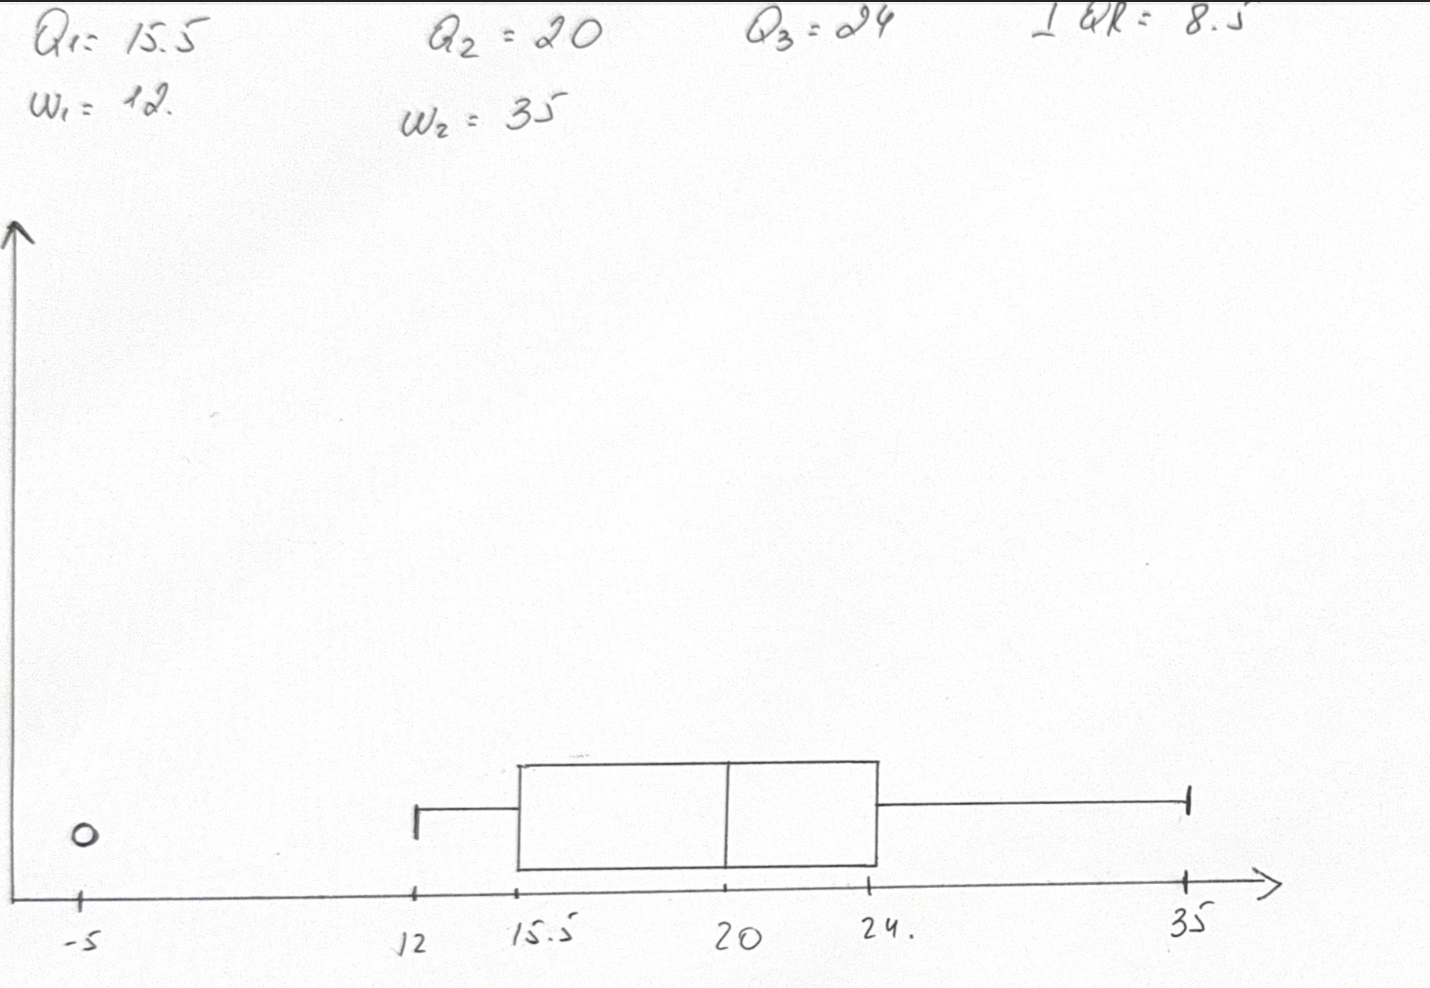 Q₁= 15.5 Q₂ = 20 Q₃ = 24 IQR = 8.5
W₁= 12. W₂ = 35
-5 12 15.5 20 24. 35